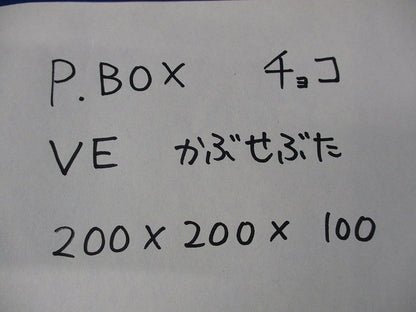 P.BOX チョコ
VE かぶせぶた
200×200×100